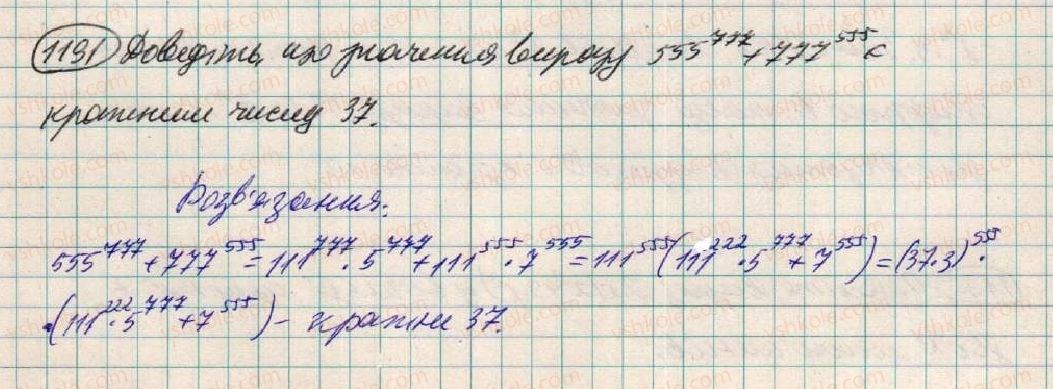 1191 Доведіть, що значення виразу 555^777 + 777^555 є
кратним числу 37.
Розв'язання:
555^777 + 777^555 = 111^777 · 5^777 + 111^555 · 7^555 = 111^555 (111^222 · 5^777 + 7^555) = (37·3)^555 ·
·(111^222 · 5^777 + 7^555) – кратне 37.